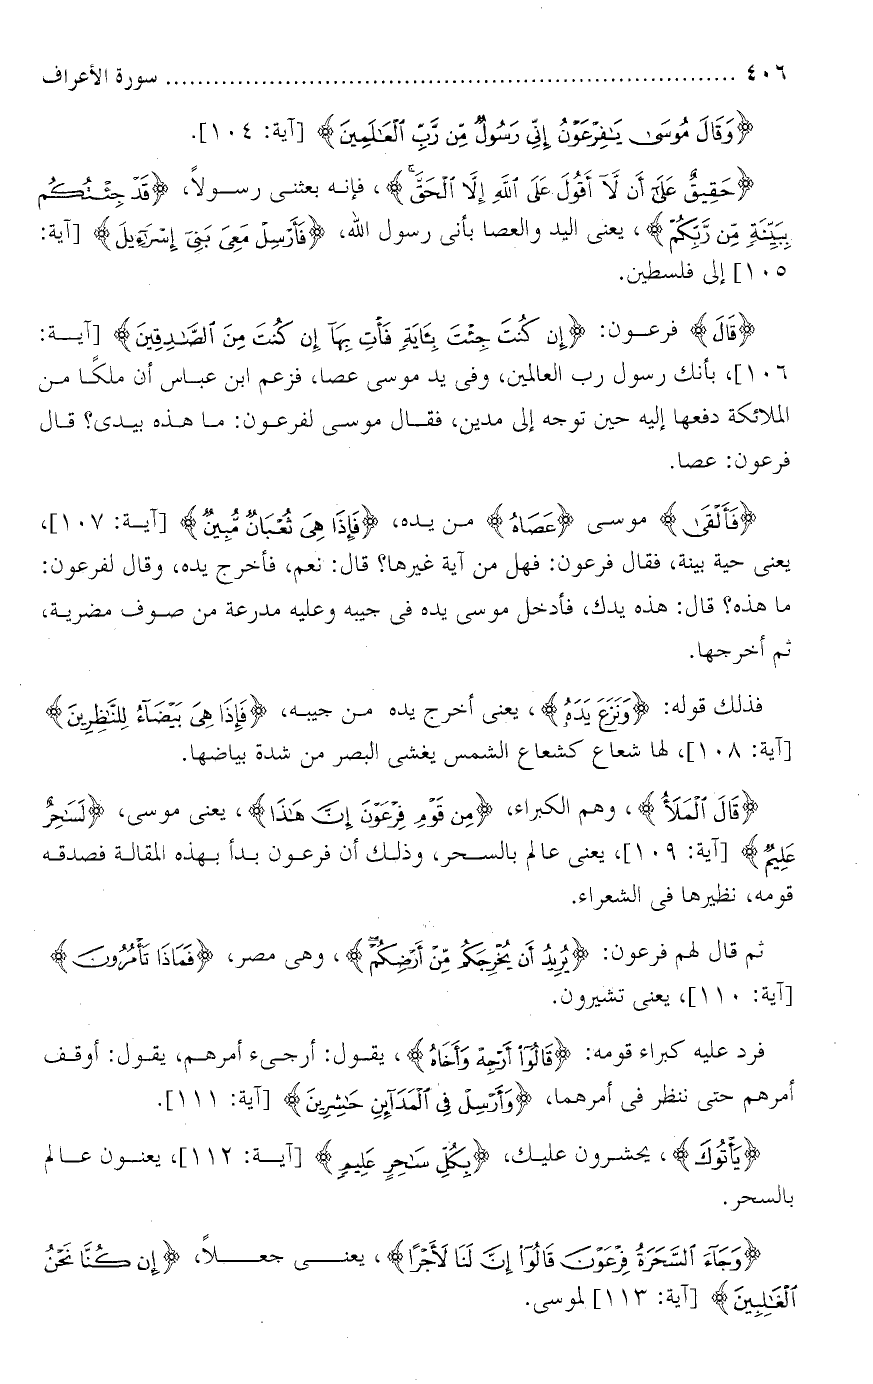 ٤٠٦ ........................................................................ سورة الأعراف
﴿وَقَالَ مُوسَىٰ يَٰفِرْعَوْنُ إِنِّي رَسُولٌ مِّن رَّبِّ ٱلْعَٰلَمِينَ﴾ [آية: ١٠٤].
﴿حَقِيقٌ عَلَىٰٓ أَن لَّآ أَقُولَ عَلَى ٱللَّهِ إِلَّا ٱلْحَقَّۚ﴾، فإنه بعثنى رسولاً، ﴿قَدْ جِئْتُكُم
بِبَيِّنَةٍ مِّن رَّبِّكُمْ﴾، يعنى اليد والعصا بأنى رسول الله، ﴿فَأَرْسِلْ مَعِىَ بَنِىٓ إِسْرَٰٓءِيلَ﴾ [آية:
١٠٥] إلى فلسطين.
﴿قَالَ﴾ فرعون: ﴿إِن كُنتَ جِئْتَ بِـَٔايَةٍ فَأْتِ بِهَآ إِن كُنتَ مِنَ ٱلصَّٰدِقِينَ﴾ [آية:
١٠٦]، بأنك رسول رب العالمين، وفى يد موسى عصا، فزعم ابن عباس أن ملكًا من
الملائكة دفعها إليه حين توجه إلى مدين، فقال موسى لفرعون: ما هذه بيدى؟ قال
فرعون: عصا.
﴿فَأَلْقَىٰ﴾ موسى ﴿عَصَاهُ﴾ من يده، ﴿فَإِذَا هِىَ ثُعْبَانٌ مُّبِينٌ﴾ [آية: ١٠٧]،
يعنى حية بينة، فقال فرعون: فهل من آية غيرها؟ قال: نعم، فأخرج يده، وقال لفرعون:
ما هذه؟ قال: هذه يدك، فأدخل موسى يده فى جيبه وعليه مدرعة من صوف مضرية،
ثم أخرجها.
فذلك قوله: ﴿وَنَزَعَ يَدَهُ﴾، يعنى أخرج يده من جيبه، ﴿فَإِذَا هِىَ بَيْضَآءُ لِلنَّٰظِرِينَ﴾
[آية: ١٠٨]، لها شعاع كشعاع الشمس يغشى البصر من شدة بياضها.
﴿قَالَ ٱلْمَلَأُ﴾، وهم الكبراء، ﴿مِن قَوْمِ فِرْعَوْنَ إِنَّ هَٰذَا﴾، يعنى موسى، ﴿لَسَٰحِرٌ
عَلِيمٌ﴾ [آية: ١٠٩]، يعنى عالم بالسحر، وذلك أن فرعون بدأ بهذه المقالة فصدقه
قومه، نظيرها فى الشعراء.
ثم قال لهم فرعون: ﴿يُرِيدُ أَن يُخْرِجَكُم مِّنْ أَرْضِكُمْۖ﴾، وهى مصر، ﴿فَمَاذَا تَأْمُرُونَ﴾
[آية: ١١٠]، يعنى تشيرون.
فرد عليه كبراء قومه: ﴿قَالُوٓا۟ أَرْجِهْ وَأَخَاهُ﴾، يقول: أرجىء أمرهم، يقول: أوقف
أمرهم حتى ننظر فى أمرهما، ﴿وَأَرْسِلْ فِى ٱلْمَدَآئِنِ حَٰشِرِينَ﴾ [آية: ١١١].
﴿يَأْتُوكَ﴾، يحشرون عليك، ﴿بِكُلِّ سَٰحِرٍ عَلِيمٍ﴾ [آية: ١١٢]، يعنون عالم
بالسحر.
﴿وَجَآءَ ٱلسَّحَرَةُ فِرْعَوْنَ قَالُوٓا۟ إِنَّ لَنَا لَأَجْرًا﴾، يعنى جعلاً، ﴿إِن كُنَّا نَحْنُ
ٱلْغَٰلِبِينَ﴾ [آية: ١١٣] لموسى.